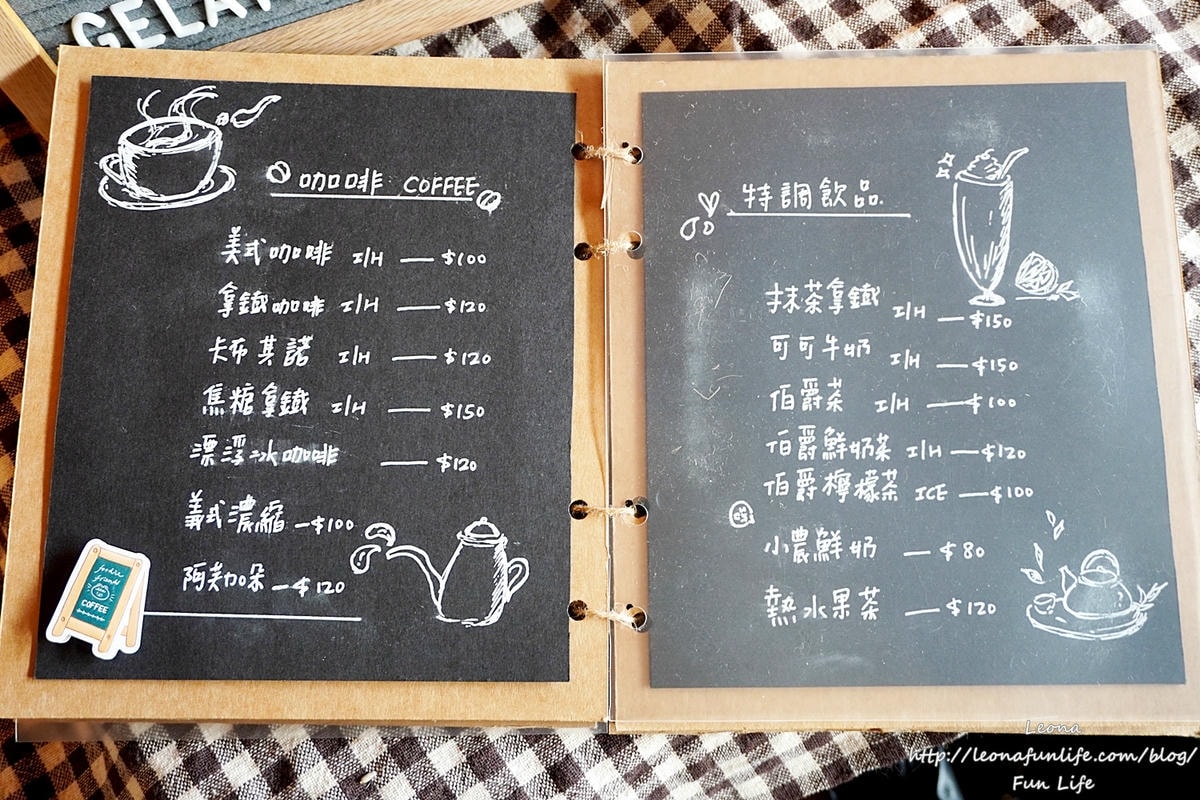 GELAT
咖啡 COFFEE
美式咖啡 I/H — $100
拿鐵咖啡 I/H — $120
卡布其諾 I/H — $120
焦糖拿鐵 I/H — $150
漂浮冰咖啡 — $120
義式濃縮 — $100
阿芙加朵 — $120
foodie
friends
COFFEE
特調飲品
抹茶拿鐵 I/H — $150
可可牛奶 I/H — $150
伯爵茶 I/H — $100
伯爵鮮奶茶 I/H — $120
伯爵檸檬茶 ICE — $100
小農鮮奶 — $80
熱水果茶 — $120
Leona
http://leonafunlife.com/blog/
Fun Life